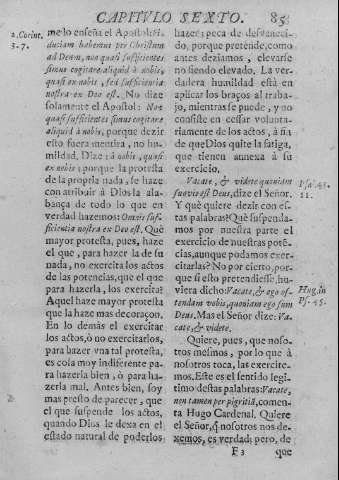 CAPITVLO SEXTO. 85
2. Corint.
3. 7.
me lo enseña el Apostol: Fi-
duciam habemus per Christum
ad Deum, non quasi sufficientes
simus cogitare aliquid à nobis,
quasi ex nobis, sed sufficientia
nostra ex Deo est. No dize
solamente el Apostol: Non
quasi sufficientes simus cogitare
aliquid à nobis, porque dezir
esto fuera mentira, no hu-
mildad, Dize: à nobis, quasi
ex nobis; porque la protesta
de la propria nada, se haze
con atribuir à Dios la ala-
bança de todo lo que en
verdad hazemos: Omnis suf-
ficientia nostra ex Deo est. Què
mayor protesta, pues, haze
el que, para hazer la de su
nada, no exercita los actos
de las potencias, que el que
para hazerla, los exercita?
Aquel haze mayor protesta
que la haze mas decoraçon.
En lo demàs el exercitar
los actos, ò no exercitarlos,
para hazer vna tal protesta,
es cosa muy indiferente pa-
ra hazerla bien, ò para ha-
zerla mal. Antes bien, soy
mas presto de parecer, que
el que suspende los actos,
quando Dios le dexa en el
estado natural de poderlos
hazer; peca de desvaneci-
do, porque pretende, como
antes deziamos, elevarse
no siendo elevado. La ver-
dadera humildad està en
aplicar los braços al trabajo,
mientras se puede, y no
consiste en cessar volunta-
riamente de los actos, à fin
de que Dios quite la fatiga,
que tienen annexa à su
exercicio.
Vacate, & videte quoniam
suavis est Deus, dize el Señor.
Y què quiere dezir con es-
tas palabras? Què suspenda-
mos por nuestra parte el
exercicio de nuestras potẽ-
cias, aunque podamos exer-
citarlas? No por cierto, por-
que si esto pretendiesse, hu-
viera dicho: Vacate, & ego os-
tendam vobis, quoniam ego sum
Deus. Mas el Señor dize: Va-
cate, & videte.
Quiere, pues, que noso-
tros mesmos, por lo que à
nosotros toca, las exercite-
mos. Este es el sentido legi-
timo destas palabras: Vacate,
non tamen per pigritiã, comen-
ta Hugo Cardenal. Quiere
el Señor, q̃ nosotros nos de-
xemos, es verdad; pero, de
Psal. 45.
11.
Hug. in
Ps. 45.
F 3 que